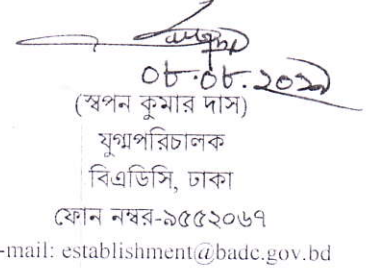 ০৮.০৮.২০১৯
(স্বপন কুমার দাস)
যুগ্মপরিচালক
বিএডিসি, ঢাকা
ফোন নম্বর-৯৫৫২০৬৭
-mail: establishment@badc.gov.bd